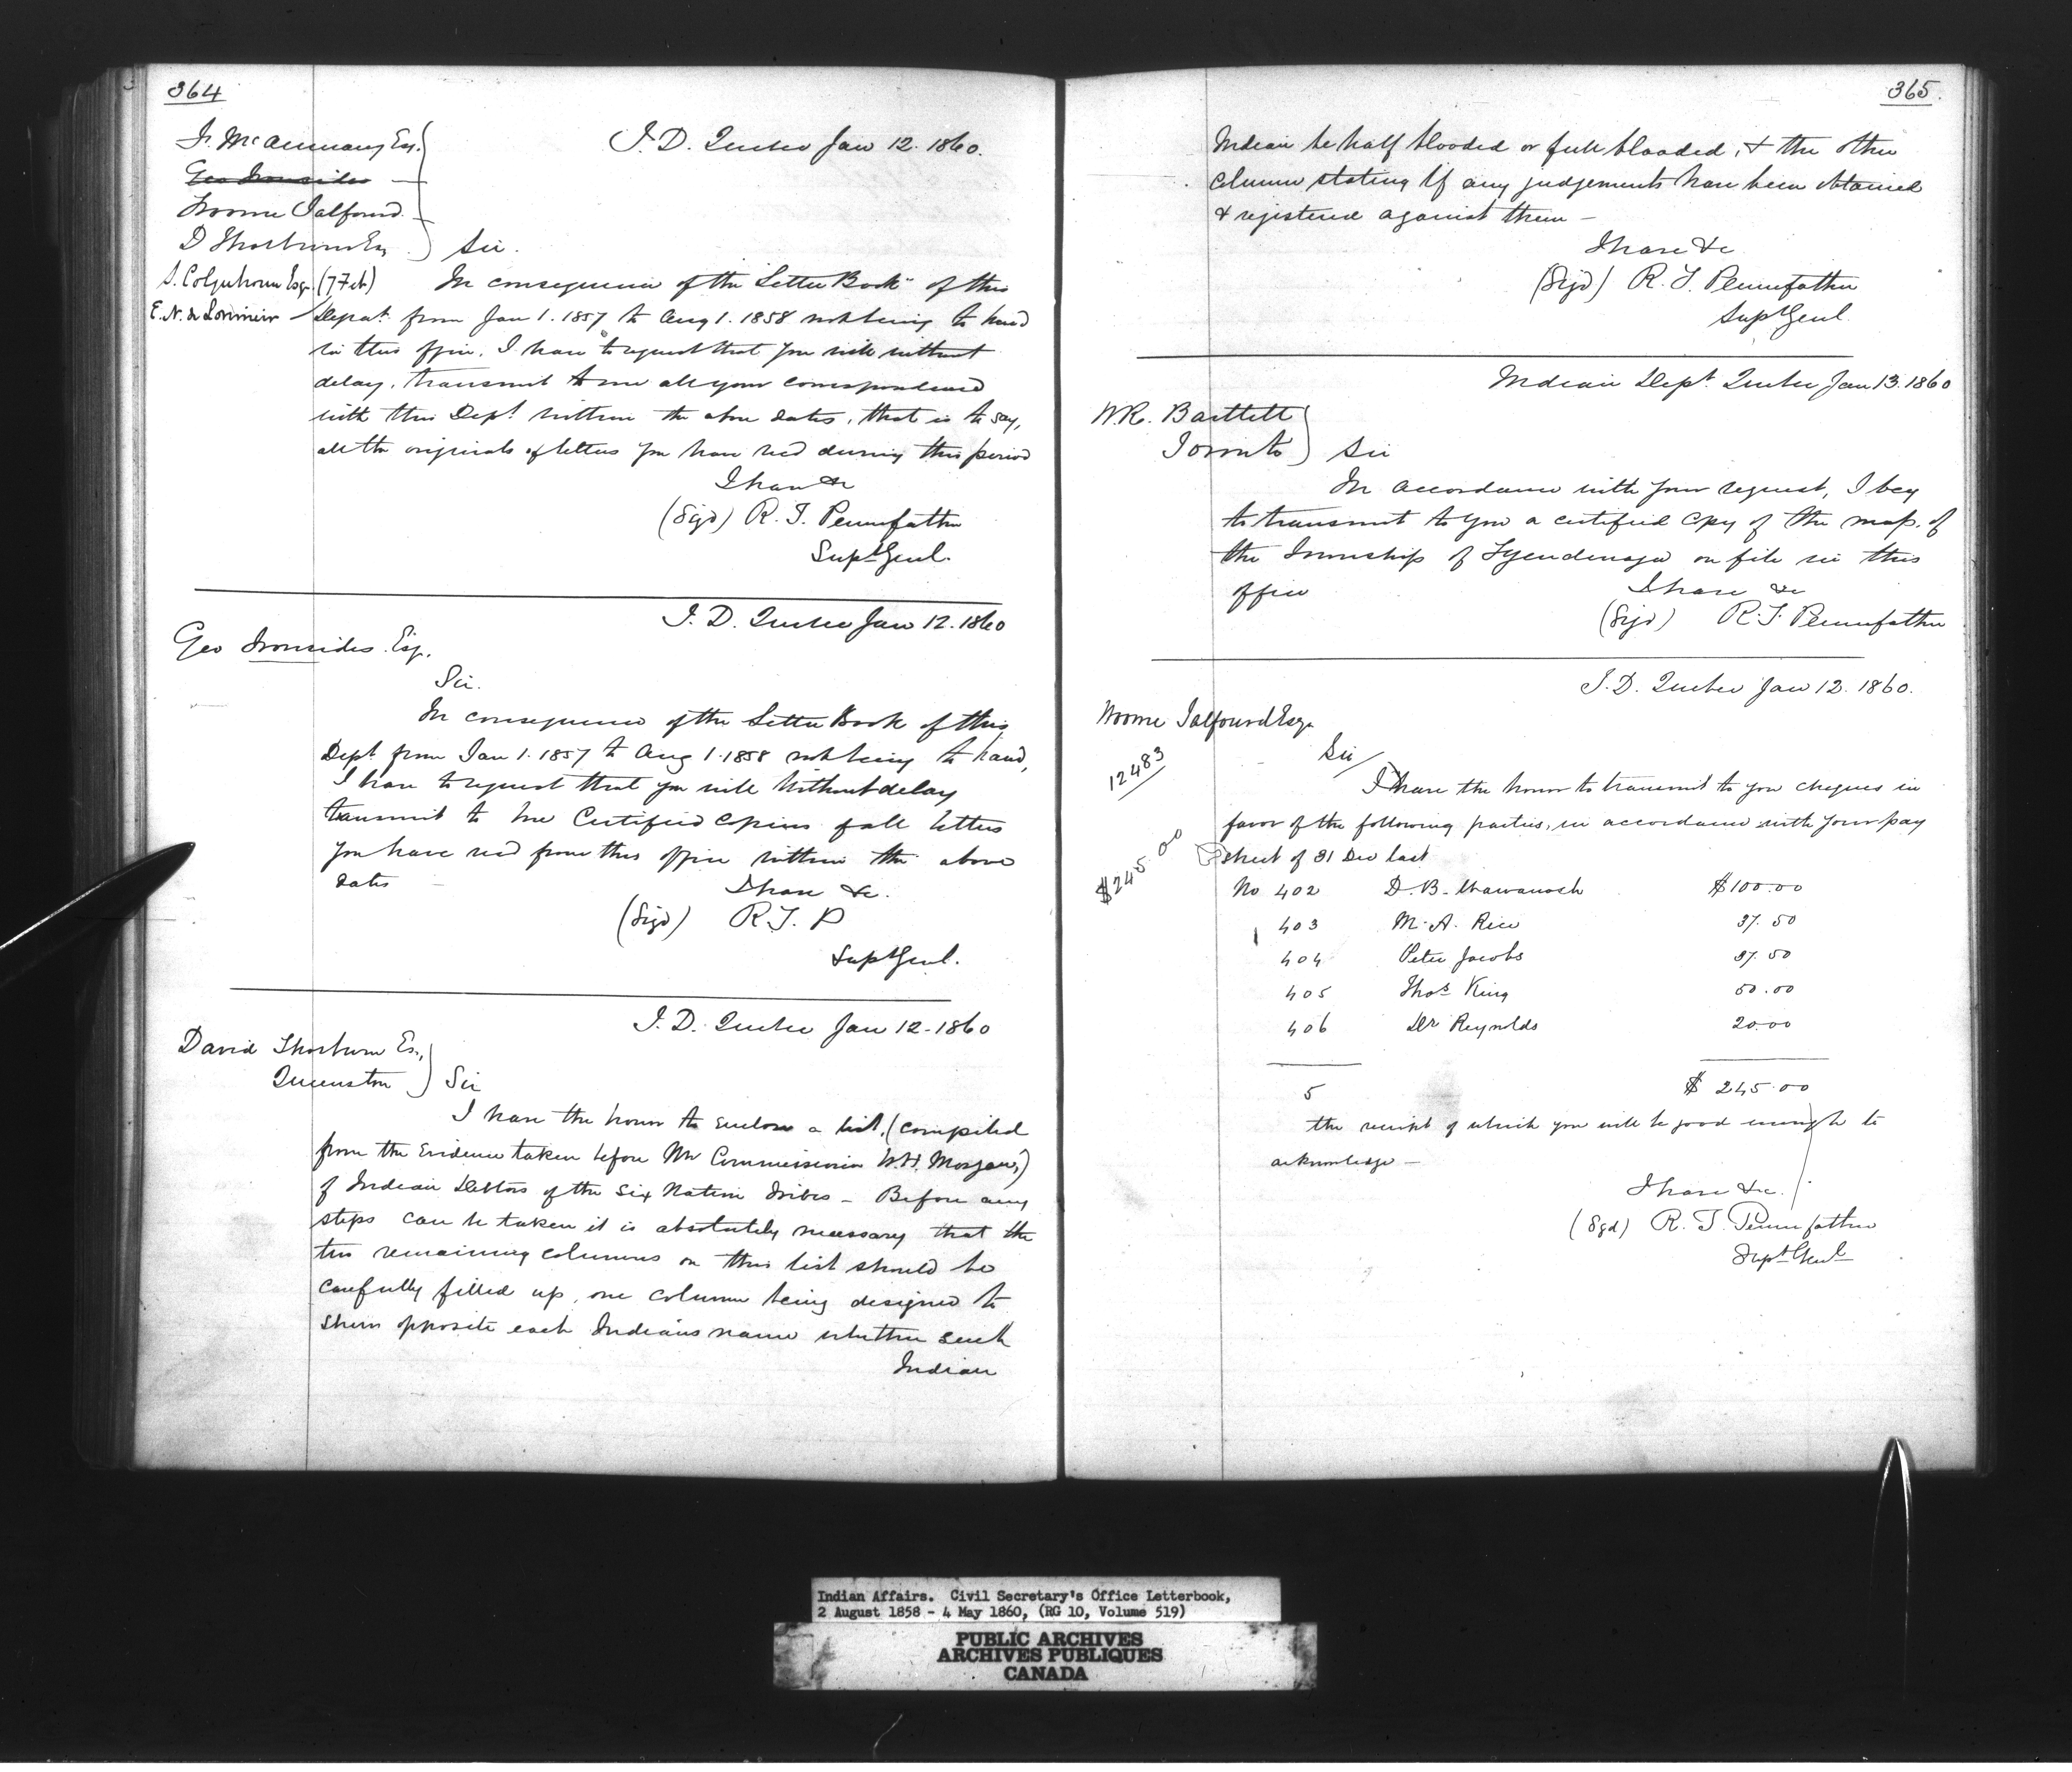 364
Fr. McAnnany Esq.
Geo Ironsides —
Froome Talfourd. —
D Thorburn Esq
S. Colquhoun Esq. (7 Feb)
E. N. de Lorimier
I. D. Quebec Jan 12. 1860.
Sir.
In consequence of the "Letter Book" of this
Depat. from Jan 1. 1857 to Aug 1. 1858 not being to hand
in this office, I have to request that you will without
delay, transmit to me all your correspondence
with this Dept. within the above dates, that is to say,
all the originals of letters you have recd during this period
I have &c
(Sigd) R. T. Pennefather
Supt Genl.
I. D. Quebec Jan 12. 1860
Geo Ironsides. Esq.
Sir.
In consequence of the Letter Book of this
Dept. from Jan 1. 1857 to Aug 1. 1858 not being to hand,
I have to request that you will without delay
transmit to me Certified Copies of all letters
you have recd from this office within the above
dates —
I have &c.
(Sigd) R. T. P
Supt Genl.
I. D. Quebec Jan 12. 1860
David Thorburn Esq,
Queenston
Sir
I have the honor to enclose a list, (compiled
from the Evidence taken before Mr Commissioner W.H. Morgan,)
of Indian Debtors of the Six Nation Tribes — Before any
steps can be taken it is absolutely necessary that the
two remaining columns on this list should be
carefully filled up, one column being designed to
shew opposite each Indians name whether such
Indian
365.
Indian be half blooded or full blooded, & the other
column stating if any judgements have been obtained
& registered against them —
I have &c
(Sigd) R. T. Pennefather
Supt Genl.
Indian Dept. Quebec Jan 13. 1860
W.R. Bartlett
Toronto
Sir
In accordance with your request, I beg
to transmit to you a certified copy of the map, of
the Township of Tyendenaga on file in this
office
I have &c
(Sigd) R. T. Pennefather
I. D. Quebec Jan 12. 1860.
Froome Talfourd Esqr
12483
$245.00
Sir
I have the honor to transmit to you cheques in
favor of the following parties, in accordance with your pay
sheet of 31 Dec last
No 402 D. B. Wawanosh $100.00
403 M. A. Rice 37.50
404 Peter Jacobs 37.50
405 Thos King 50.00
406 Dr Reynolds 20.00
5 $ 245.00
the receipt of which you will be good enough to
acknowledge —
I have &c.
(Sgd) R. T. Pennefather
Supt Genl
Indian Affairs. Civil Secretary's Office Letterbook,
2 August 1858 - 4 May 1860, (RG 10, Volume 519)
PUBLIC ARCHIVES
ARCHIVES PUBLIQUES
CANADA